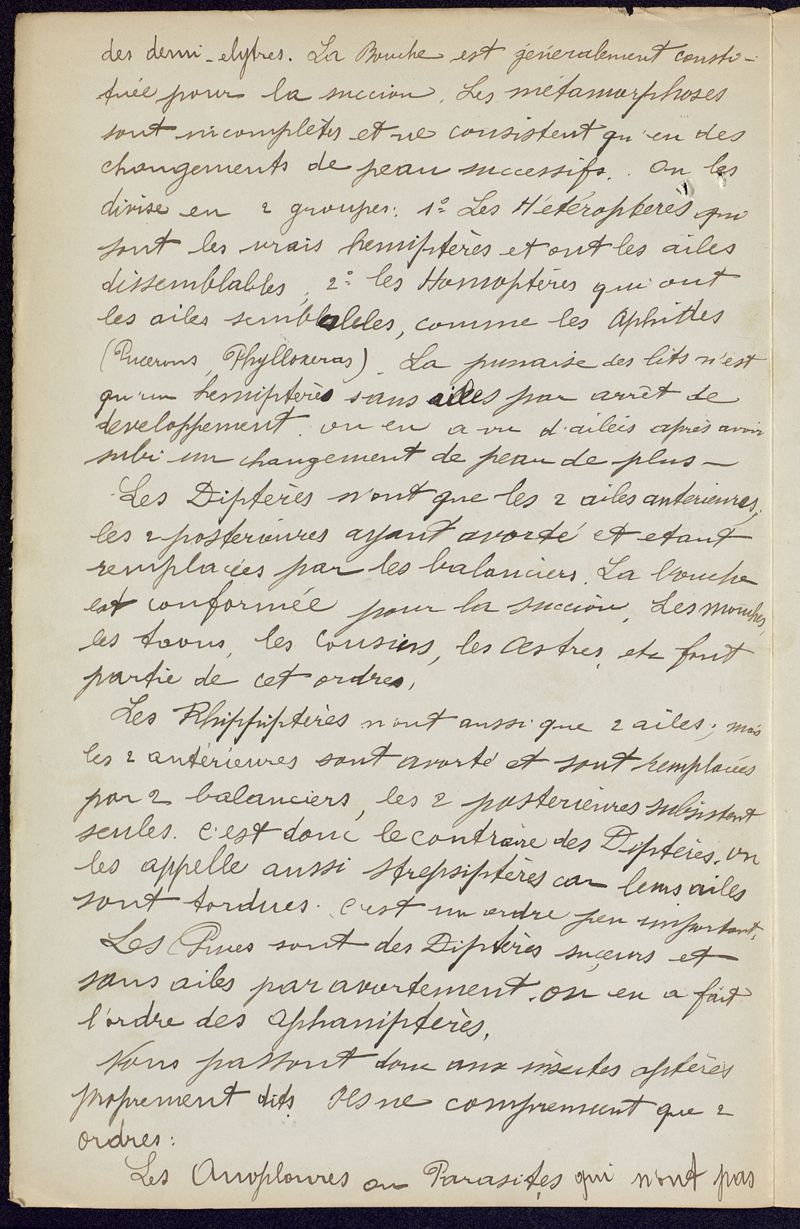 des demi-elytres. La Bouche est généralement consti-
tuée pour la succion. Les métamorphoses
sont incomplètes et ne consistent qu'en des
changements de peau successifs. On les
divise en 2 groupes: 1º Les Hétéroptères qui
sont les vrais hemiptères et ont les ailes
dissemblables, 2º les Homoptères qui ont
les ailes semblables, comme les Aphides
(Pucerons, Phylloxeras). La punaise des lits n'est
qu'un hemiptères sans ailes par arrêt de
developpement. on en a vu d'ailées après avoir
subi un changement de peau de plus -
Les Diptères n'ont que les 2 ailes anterieures,
les 2 posterieures ayant avorté et etant
remplacées par les balanciers. La bouche
est conformée pour la succion. Les mouches,
les taons, les cousins, les Œstres, etc font
partie de cet ordres.
Les Rhipiptères n'ont aussi que 2 ailes; mais
les 2 antérieures sont avorté et sont remplacées
par 2 balanciers, les 2 posterieures subsistant
seules. C'est donc le contraire des Diptères. On
les appelle aussi Strepsiptères car leurs ailes
sont tordues. C'est un ordre peu important.
Les Puces sont des Diptères suçeurs et
sans ailes par avortement. On en a fait
l'ordre des Aphaniptères.
Nous passont donc aux insectes aptères
proprement dits. Ils ne comprennent que 2
ordres:
Les Anoploures ou Parasites qui n'ont pas